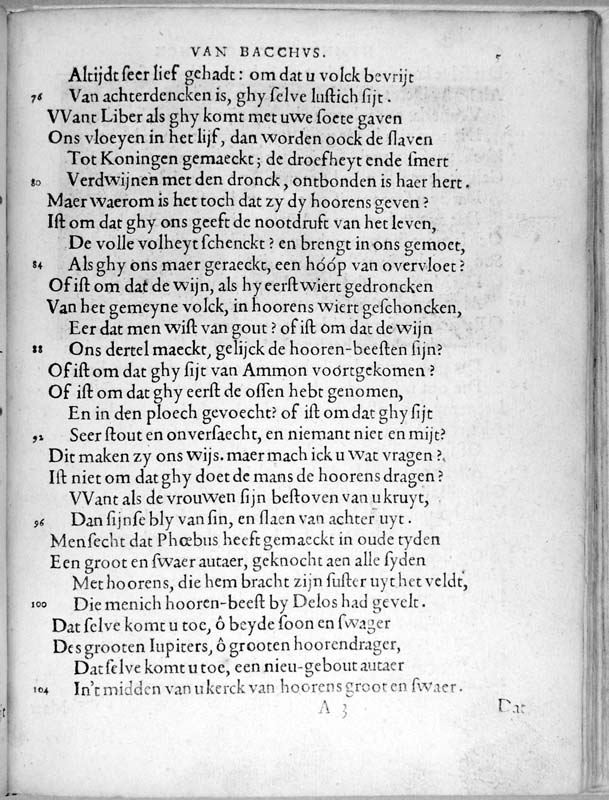 VAN BACCHVS.
Altijdt ſeer lief gehadt: om dat u volck bevrijt
76 Van achterdencken is, ghy ſelve luſtich ſijt.
VVant Liber als ghy komt met uwe ſoete gaven
Ons vloeyen in het lijf, dan worden oock de ſlaven
Tot Koningen gemaeckt; de droefheyt ende ſmert
80 Verdwijnen met den dronck, ontbonden is haer hert.
Maer waerom is het toch dat zy dy hoorens geven?
Iſt om dat ghy ons geeft de nootdruft van het leven,
De volle volheyt ſchenckt? en brengt in ons gemoet,
84 Als ghy ons maer geraeckt, een hóóp van overvloet?
Of iſt om dat de wijn, als hy eerſt wiert gedroncken
Van het gemeyne volck, in hoorens wiert geſchoncken,
Eer dat men wiſt van gout? of iſt om dat de wijn
88 Ons dertel maeckt, gelijck de hooren-beeſten ſijn?
Of iſt om dat ghy ſijt van Ammon voórtgekomen?
Of iſt om dat ghy eerſt de oſſen hebt genomen,
En in den ploech gevoecht? of iſt om dat ghy ſijt
92 Seer ſtout en onverſaecht, en niemant niet en mijt?
Dit maken zy ons wijs. maer mach ick u wat vragen?
Iſt niet om dat ghy doet de mans de hoorens dragen?
VVant als de vrouwen ſijn beſtoven van u kruyt,
96 Dan ſijnſe bly van ſin, en ſlaen van achter uyt.
Men ſecht dat Phœbus heeft gemaeckt in oude tyden
Een groot en ſwaer autaer, geknocht aen alle ſyden
Met hoorens, die hem bracht zijn ſuſter uyt het veldt,
100 Die menich hooren-beeſt by Delos had gevelt.
Dat ſelve komt u toe, ô beyde ſoon en ſwager
Des grooten Iupiters, ô grooten hoorendrager,
Dat ſelve komt u toe, een nieu-gebout autaer
104 In't midden van u kerck van hoorens groot en ſwaer.
A 3 Dat